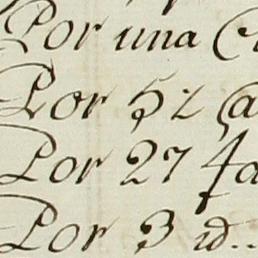 Por una
Por 52
Por 27
Por 3 id..